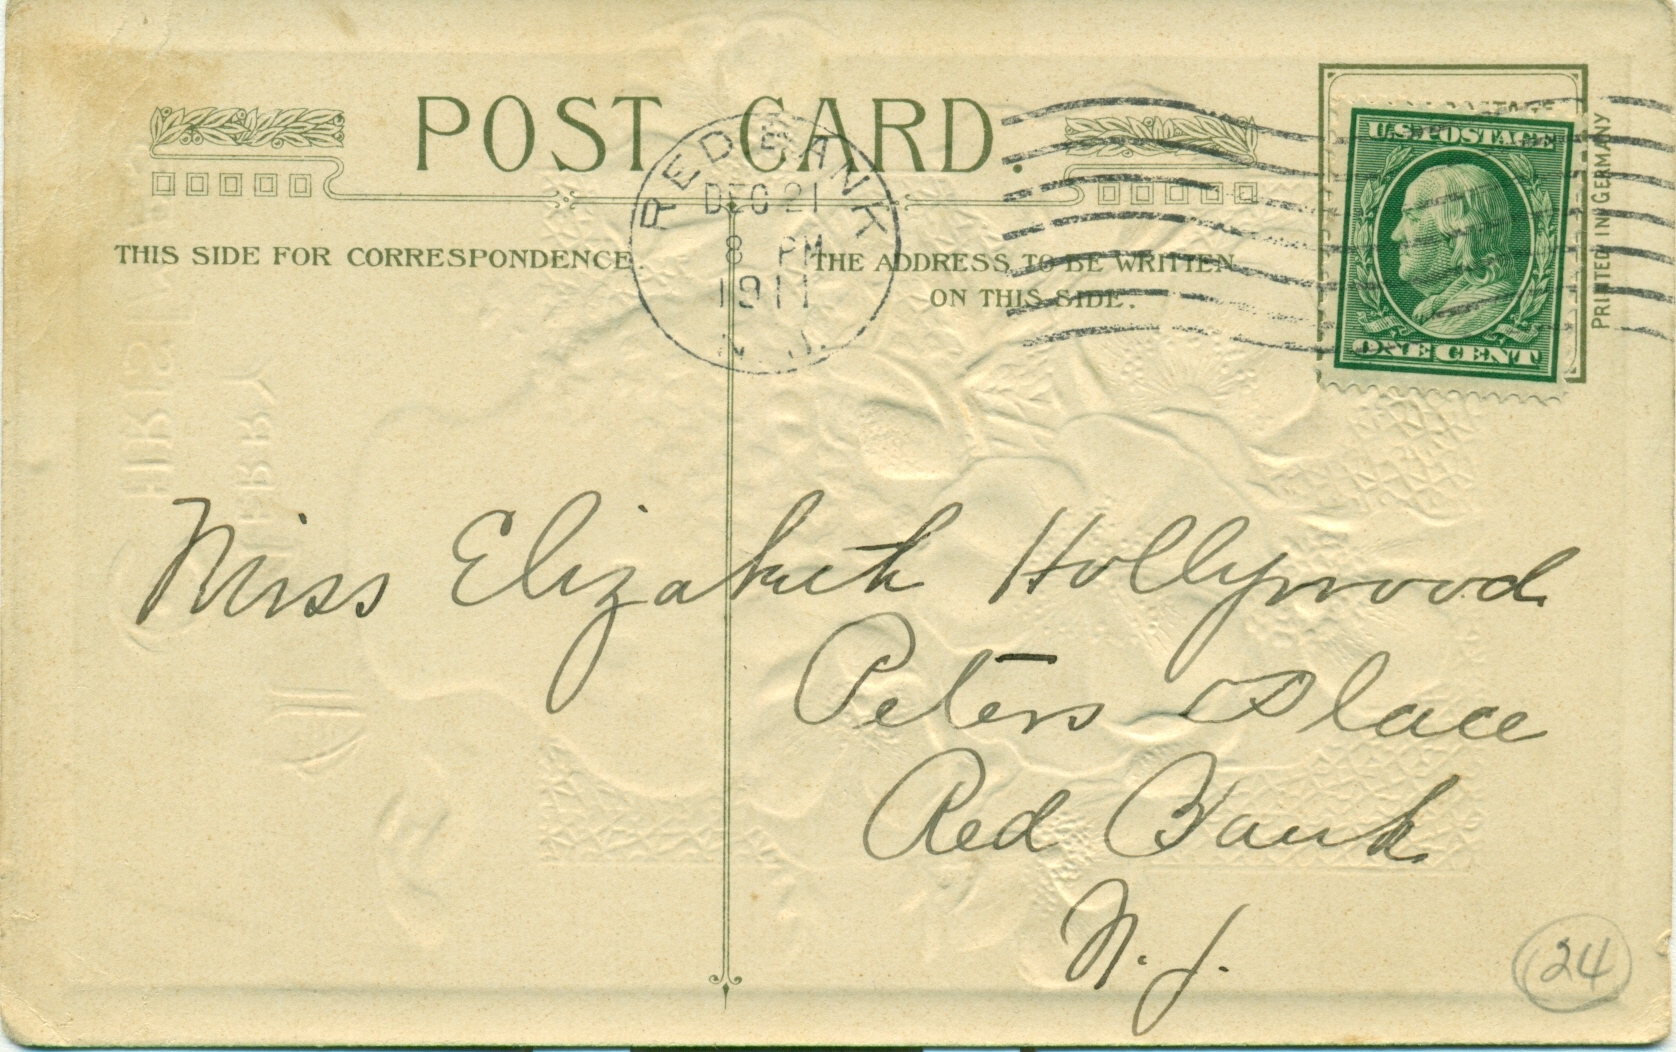 POST CARD.
RED BANK
DEC 21
8 PM
1911
N.J.
U.S. POSTAGE
ONE CENT
PRINTED IN GERMANY
THIS SIDE FOR CORRESPONDENCE.
THE ADDRESS TO BE WRITTEN
ON THIS SIDE.
Miss Elizabeth Hollywood
Peters Place
Red Bank
N. J.
24